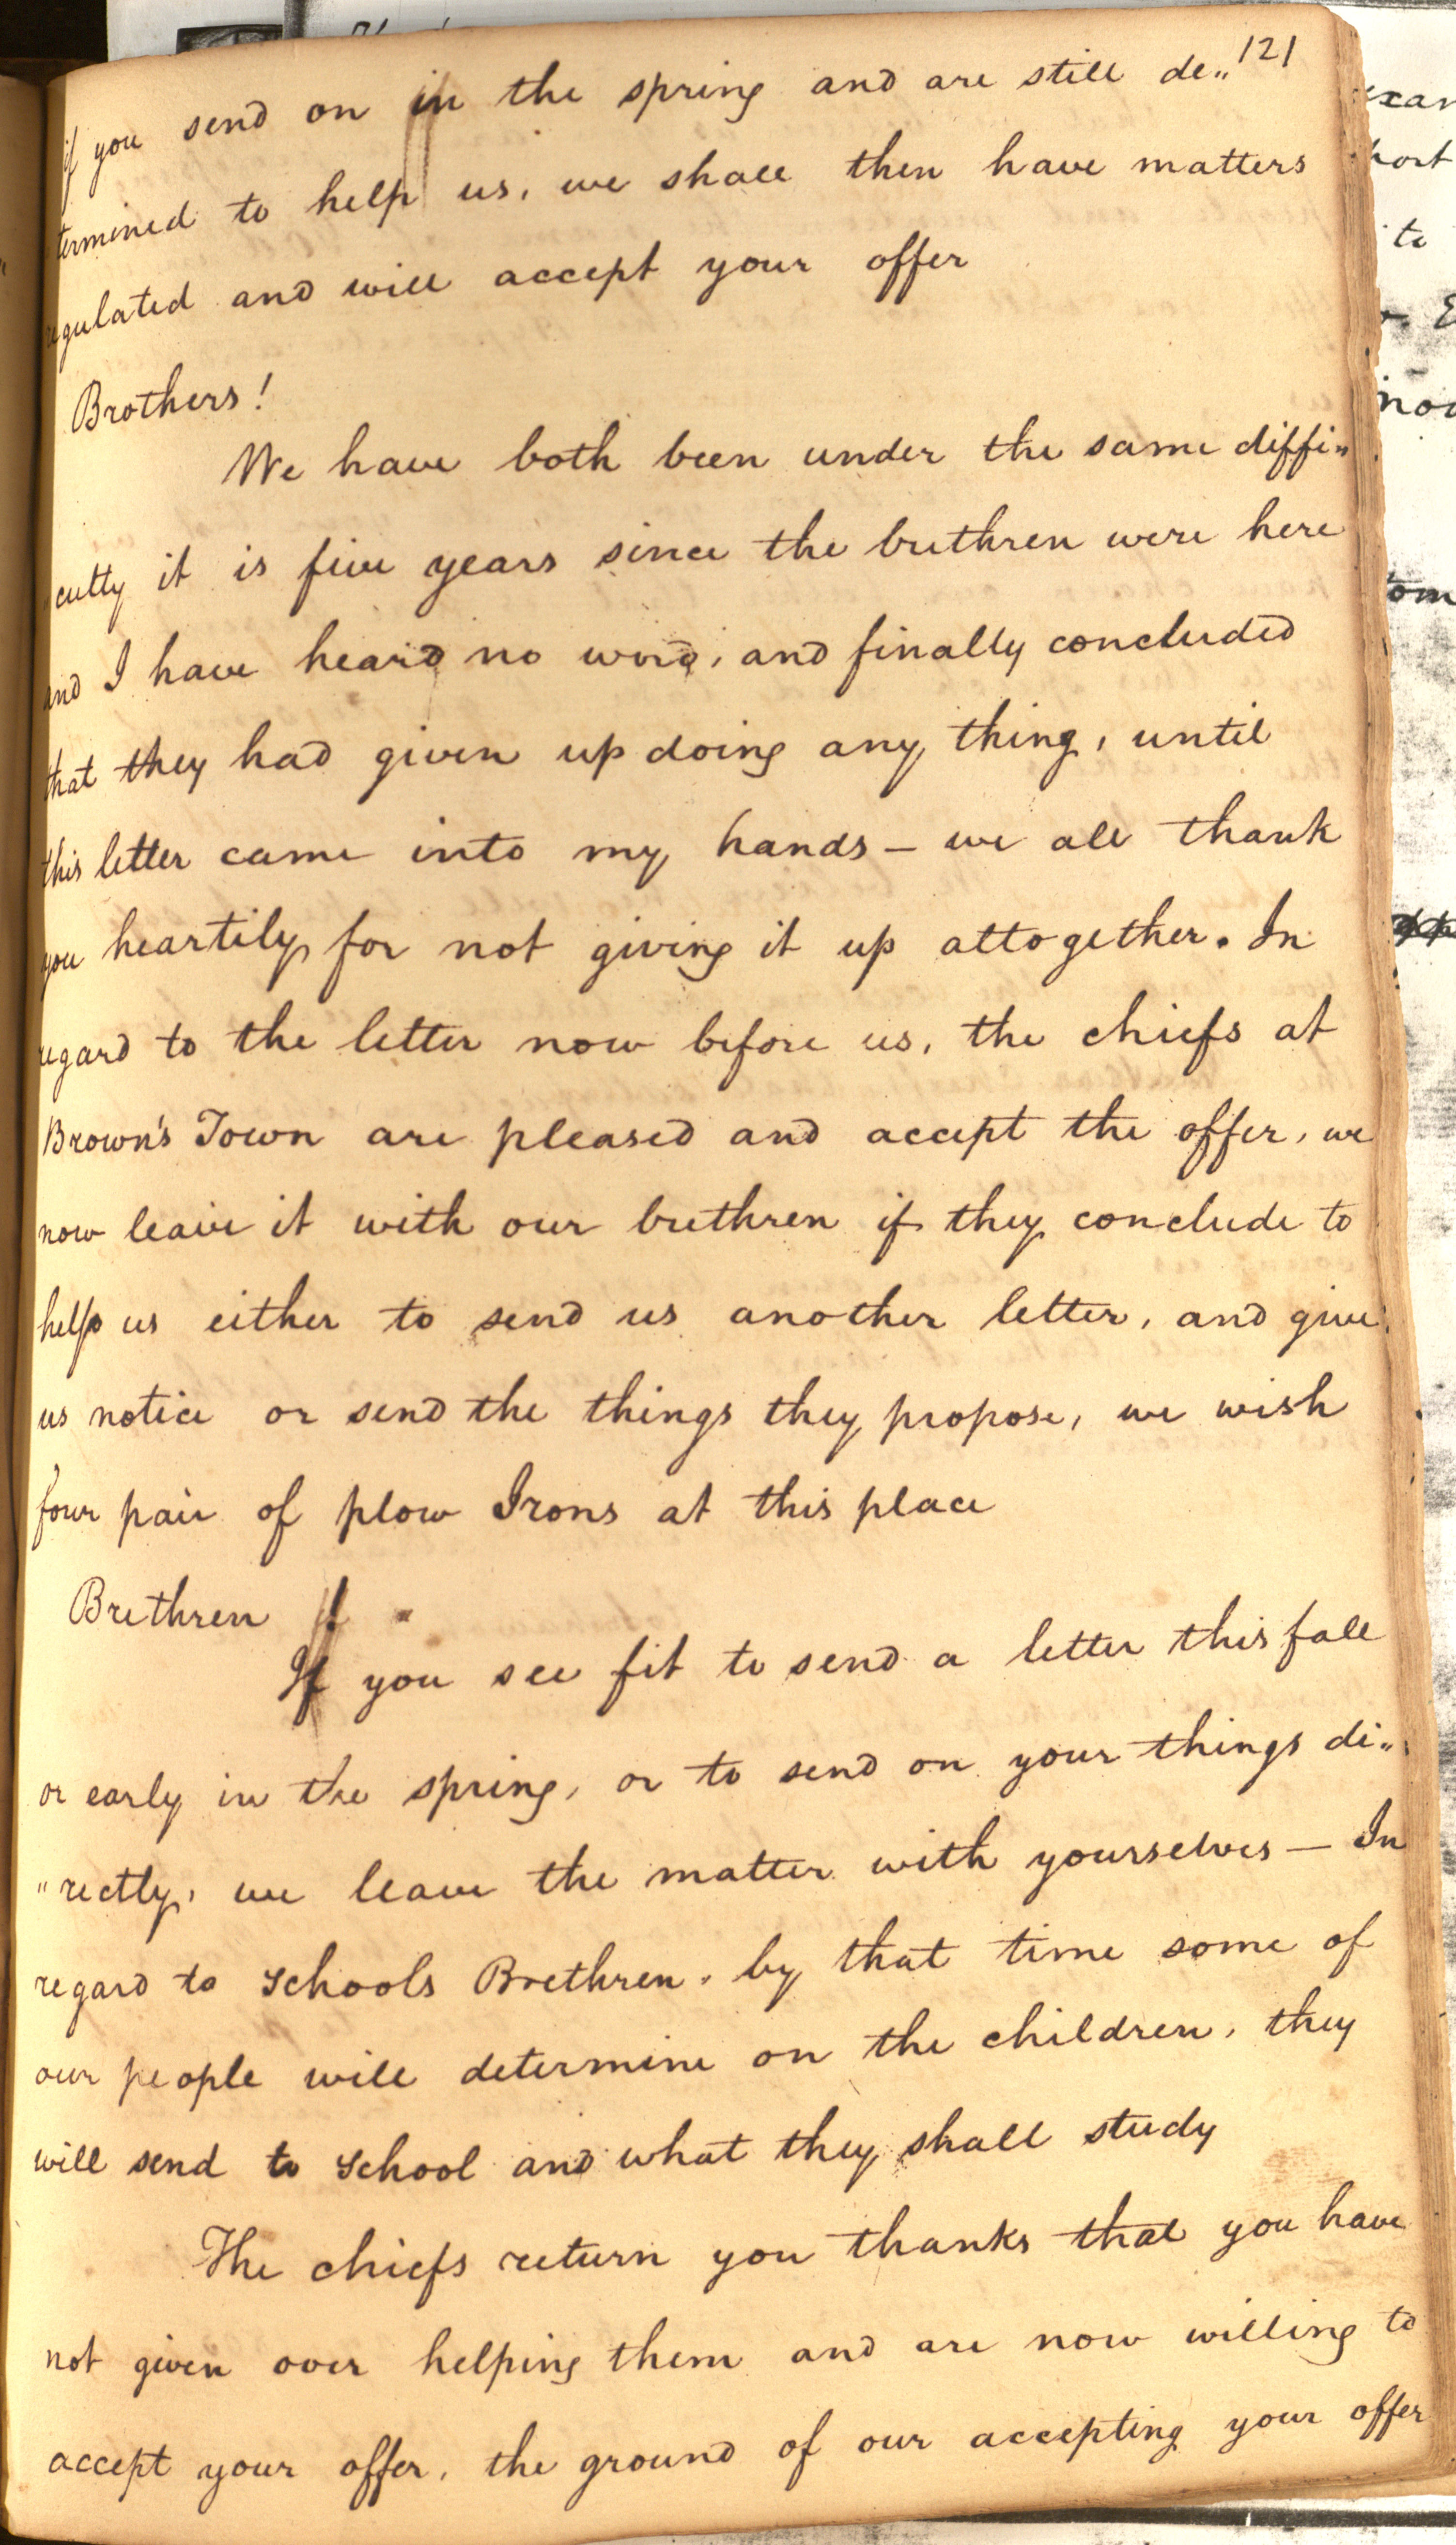 121
if you send on in the spring and are still de„
termined to help us, we shall then have matters
regulated and will accept your offer
Brothers!
We have both been under the same diffi„
„culty it is five years since the brethren were here
and I have heard no word, and finally concluded
that they had given up doing any thing, until
this letter came into my hands – we all thank
you heartily for not giving it up altogether. In
regard to the letter now before us, the chiefs at
Brown's Town are pleased and accept the offer, we
now leave it with our brethren if they conclude to
help us either to send us another letter, and give
us notice or send the things they propose, we wish
four pair of plow Irons at this place
Brethren !
If you see fit to send a letter this fall
or early in the spring, or to send on your things di„
„rectly, we leave the matter with yourselves – In
regard to schools Brethren, by that time some of
our people will determine on the children, they
will send to school and what they shall study
The chiefs return you thanks that you have
not given over helping them and are now willing to
accept your offer, the ground of our accepting your offer